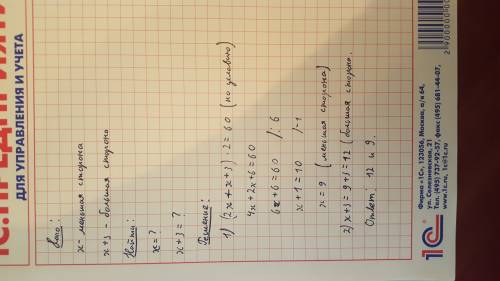 Дано:
x - меньшая сторона
x + 3 - большая сторона
Найти:
x = ?
x + 3 = ?
Решение:
1) (2x + x + 3) · 2 = 60 (по условию)
4x + 2x + 6 = 60
6x + 6 = 60 /: 6
x + 1 = 10 /-1
x = 9 (меньшая сторона)
2) x + 3 = 9 + 3 = 12 (большая сторона.
Ответ: 12 и 9.
1С:ПРЕДПРИЯТИ
ДЛЯ УПРАВЛЕНИЯ И УЧЕТА
1С
Фирма «1С», 123056, Москва, а/я 64,
ул. Селезневская, 21
Тел. (495) 737-92-57, факс (495) 681-44-07,
www.1c.ru, 1c@1c.ru